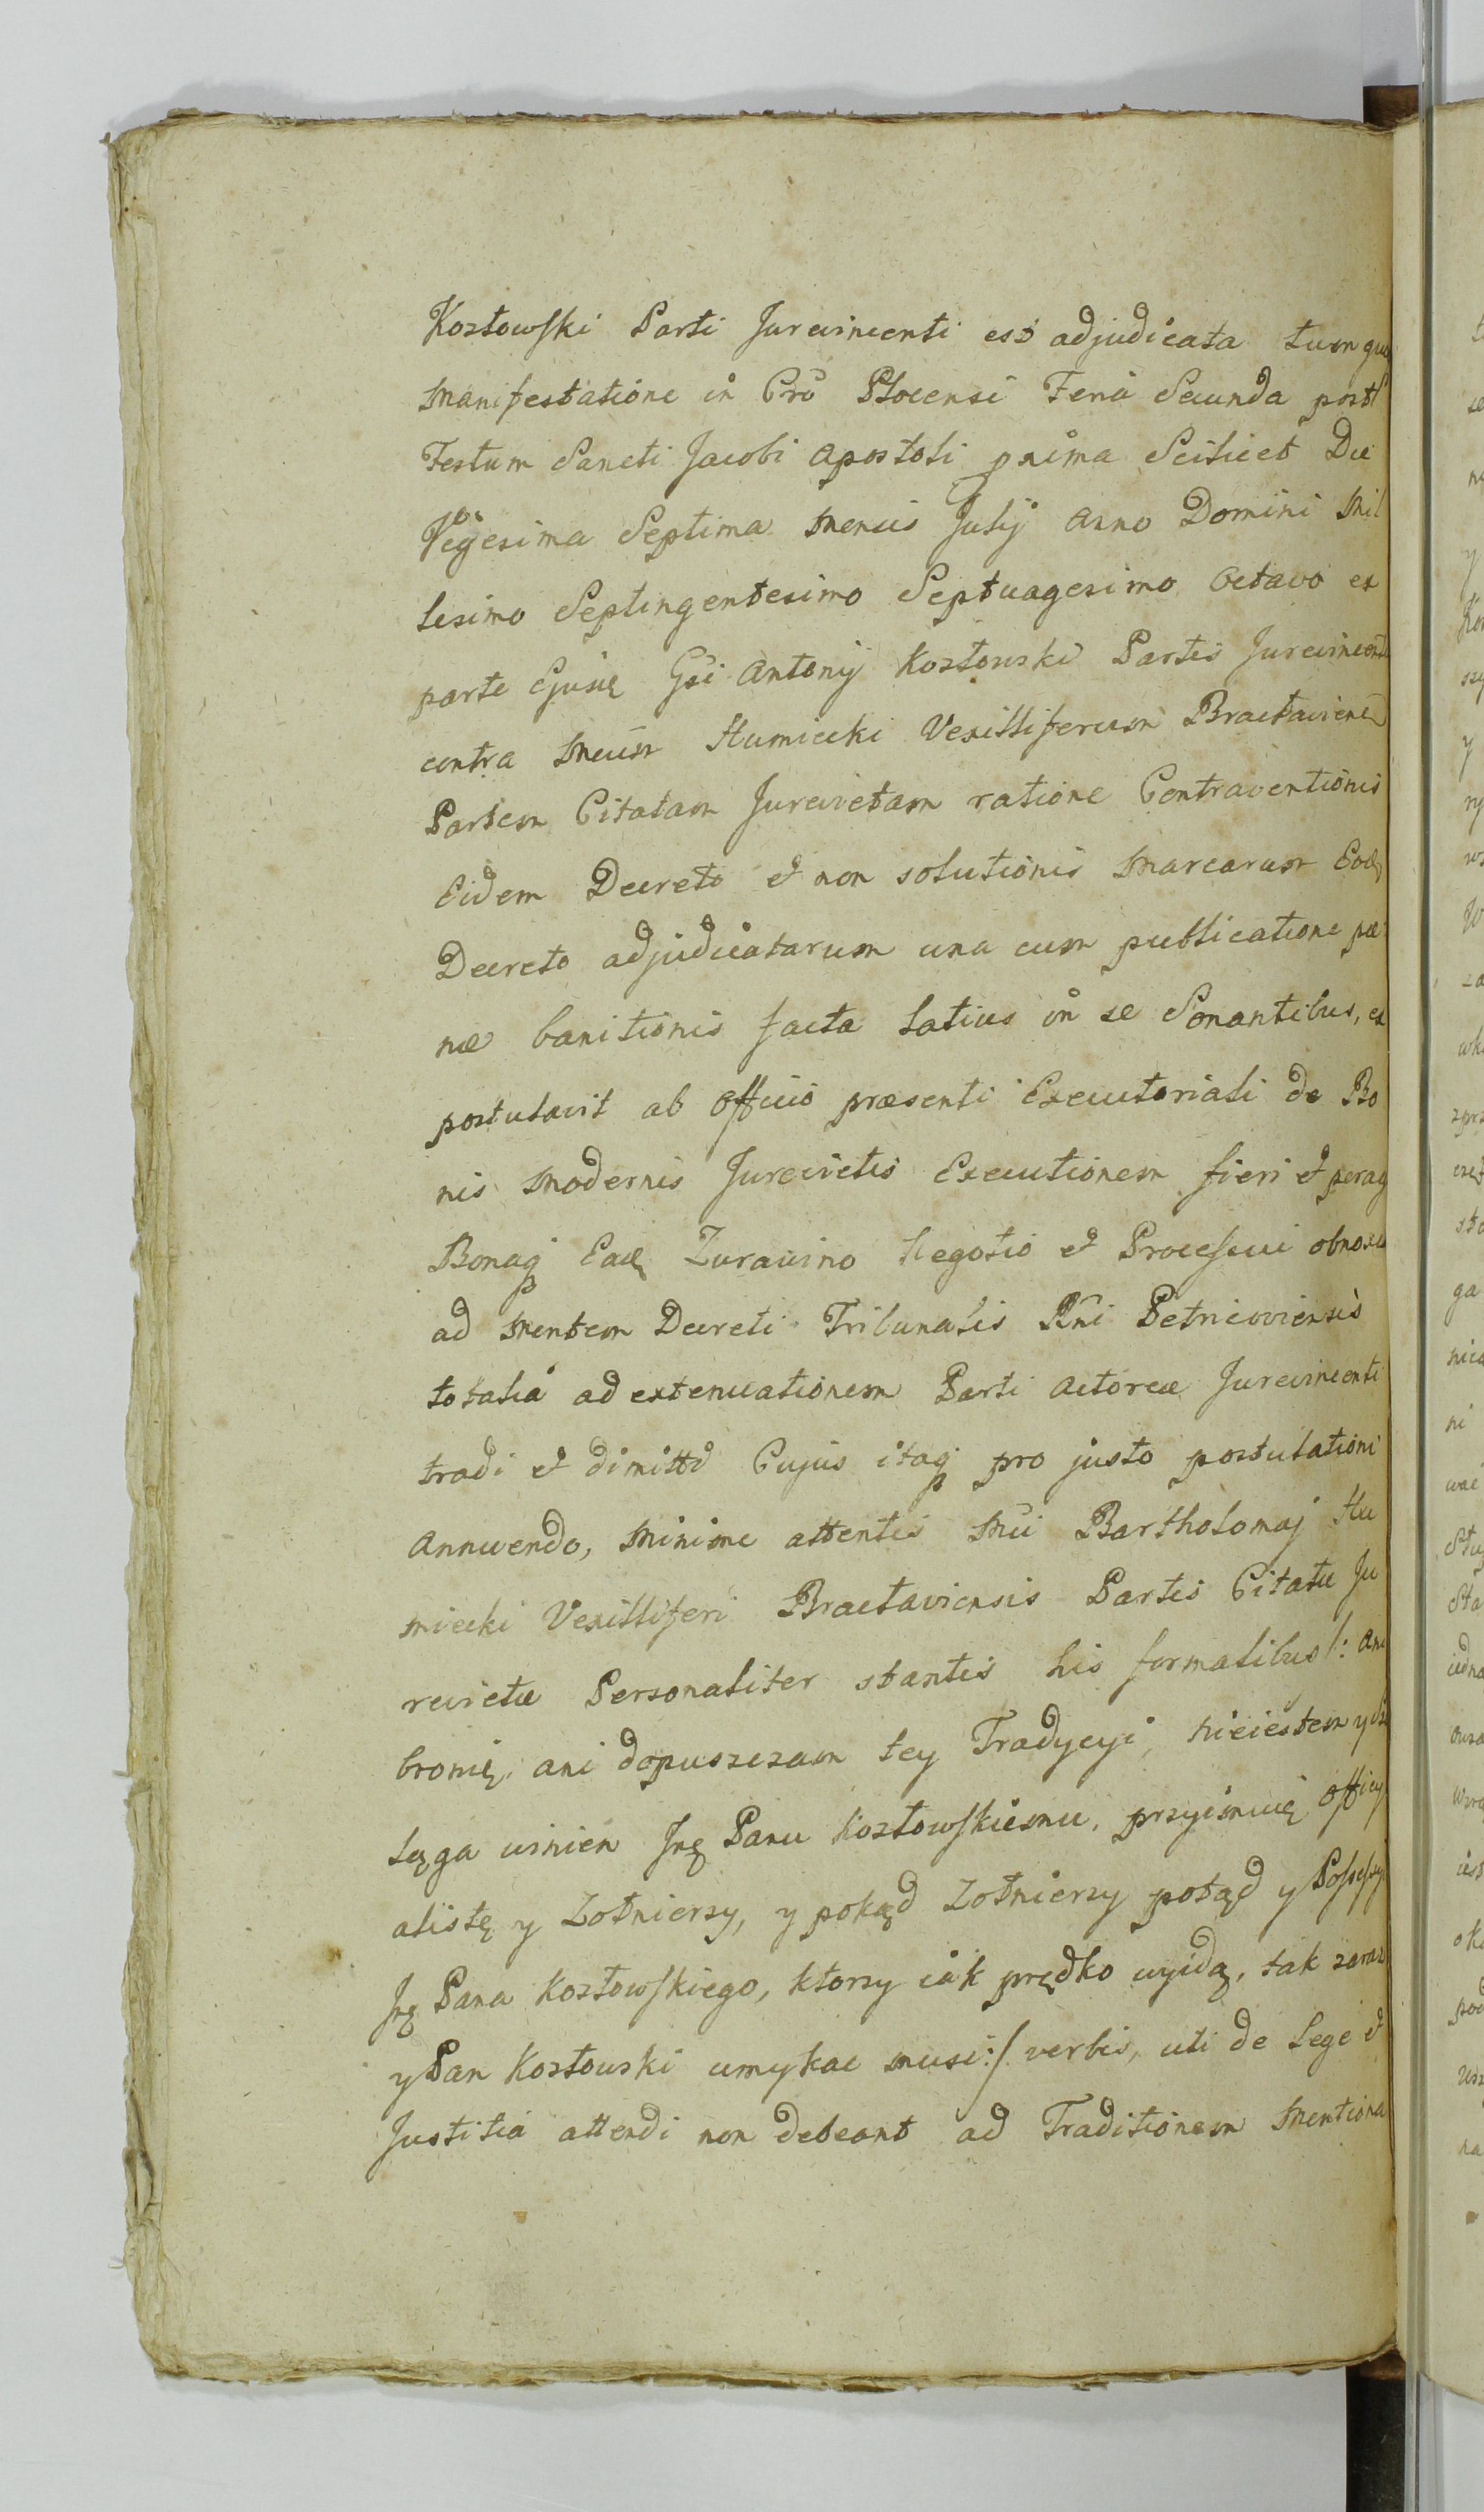 Kozłowski Parti Jurevincenti est adjudicata tum que
Manifestatione in Crō Plocensi Feria Secunda post
Festum Sancti Jacobi Apostoli prima Scilicet Die
Vigesima Septima Mensis Julij Anno Domini Mil
lesimo Septingentesimo Septuagesimo Octavo ex
parte Ejusą Gsi Antonij Kozłowski Partis Jurevincentis
contra Mcum Humiecki Vexilliferum Bractaviensē
Partem Citatam Jurevictam ratione Contraventionis
Eidem Decreto et non solutionis Marcarum Eodę
Decreto adjudicatarum una cum publicatione pæ
næ banitionis facta latius in se Sonantibus, ex
postulavit ab Officio præsenti Executoriali de Bo
nis Modernis Jurevictis Executionem fieri et perag
Bonaq Eadę Zurawino Negotio et Processui obnoxia
ad Mentem Decreti Tribunalis Rni Petricoviensis
totalia ad extenuationem Parti Actoreæ Jurevincenti
tradi et dimitti Cujus itaq pro justo postulationi
Annuendo, Minime attentis Mci Bartholomaj Hu
miecki Vexilliferi Bractaviensis Partis Citatæ Ju
revictæ Personaliter stantis his formalibus /: Ani
bronię, ani dopuszczam tey Tradycyi, nieiestem y Sze
ląga winien Jmę Panu Kozłowskiemu, przyimuię Officy
alistę y Zołnierzy, y pokąd Zołnierzy potąd y Possessyi
Jmę Pana Kozłowskiego, ktorzy iak prędko wyidą, tak zaraz
y Pan Kozłowski umykac musi :/ verbis, uti de Lege et
Justitia attendi non debeant ad Traditionem Mentiona